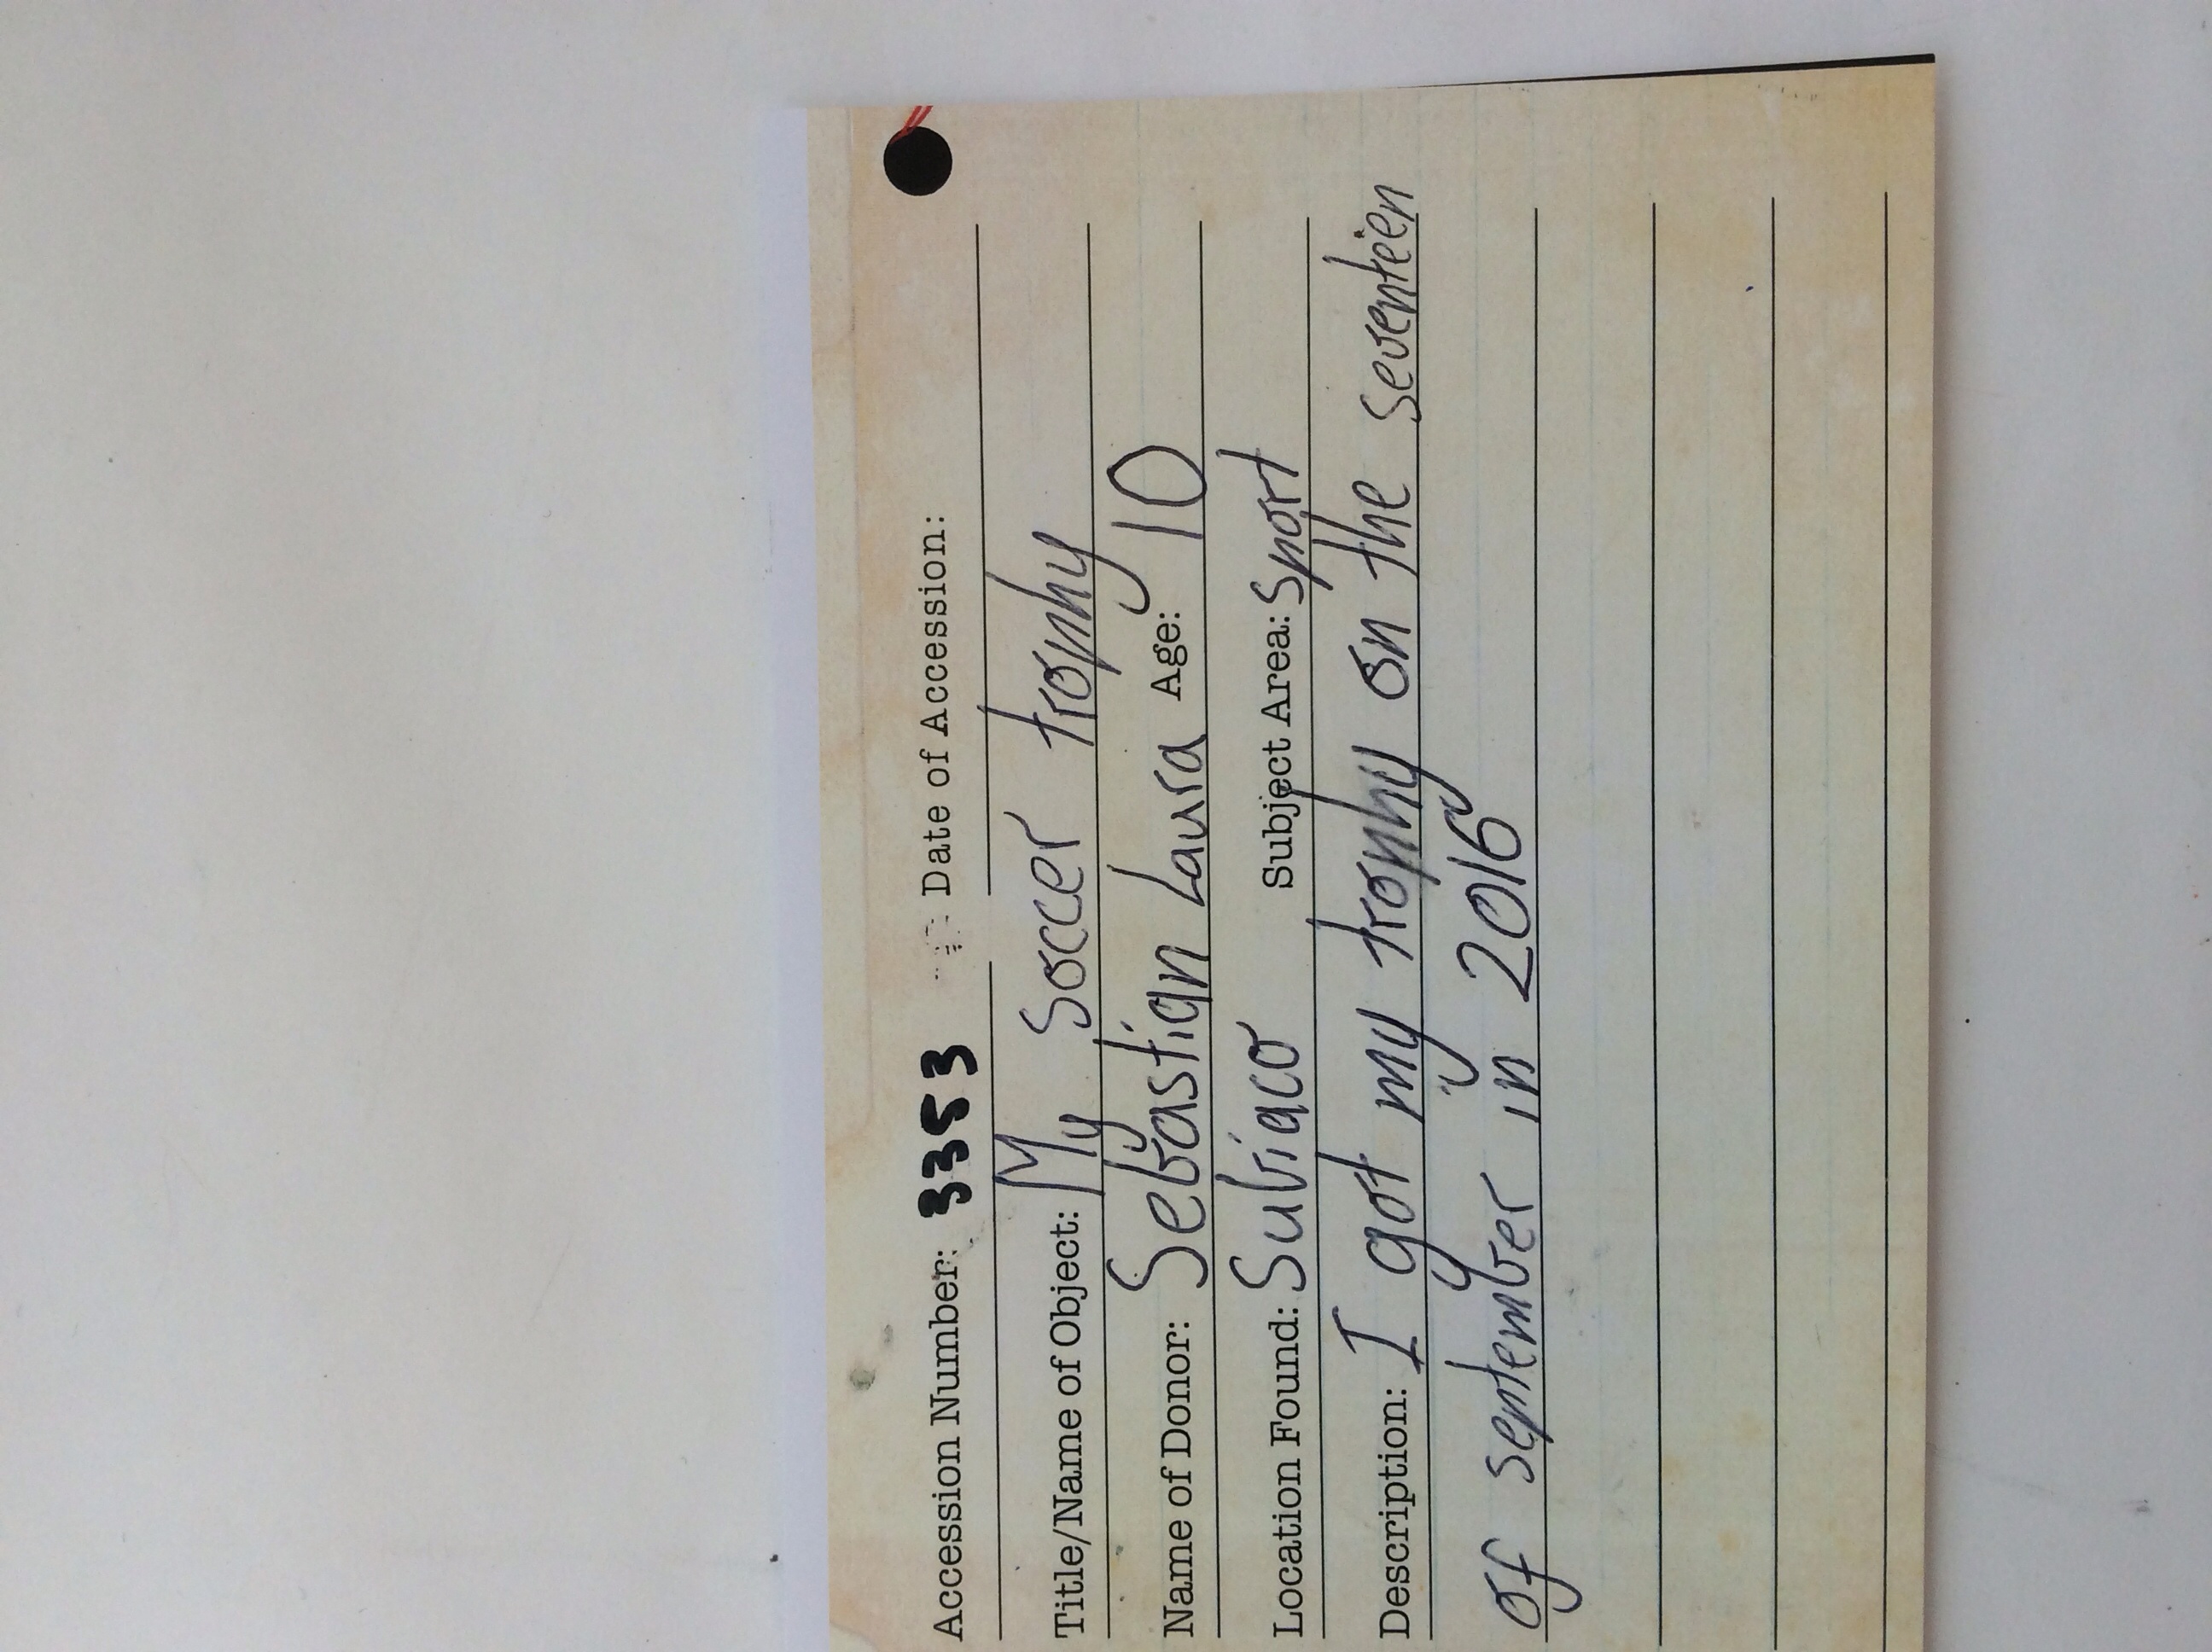 Accession Number: 3353 Date of Accession:
Title/Name of Object: My Soccer trophy
Name of Donor: Sebastian Laura Age: 10
Location Found: Subiaco Subject Area: Sport
Description: I got my trophy on the seventeen
of september in 2016